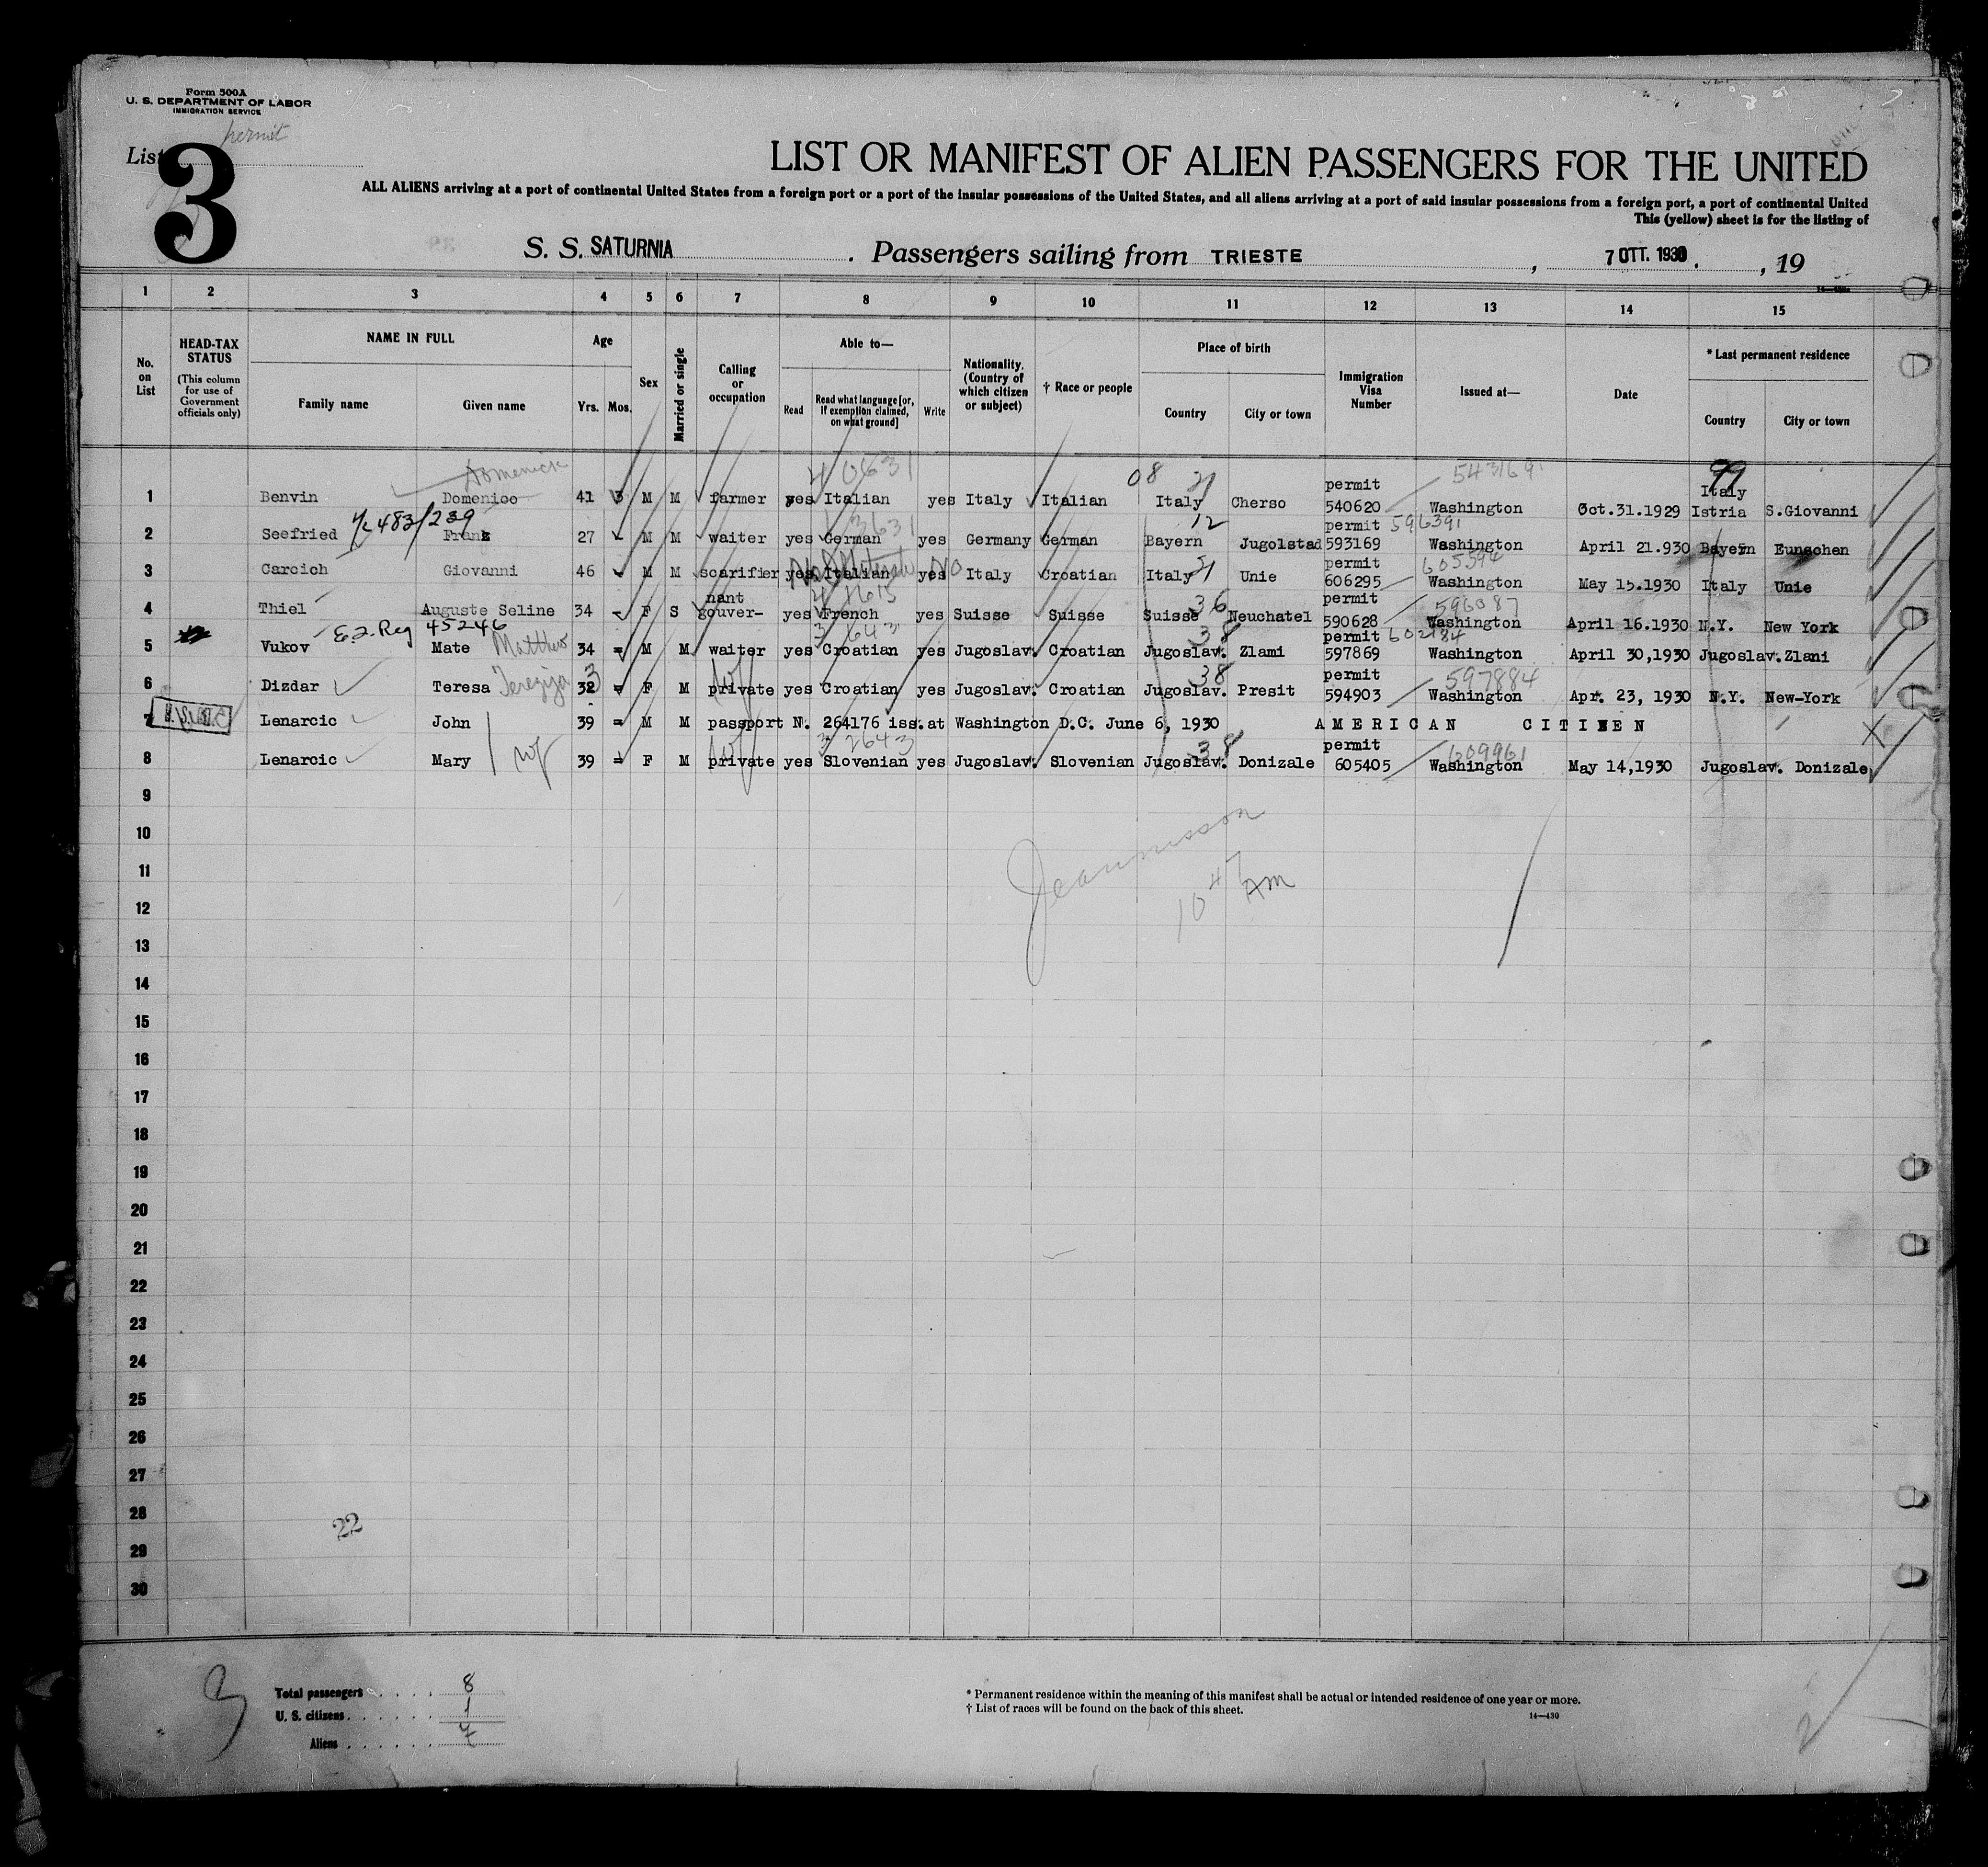 Form 500A
U. S. DEPARTMENT OF LABOR
IMMIGRATION SERVICE
permit
List 3
LIST OR MANIFEST OF ALIEN PASSENGERS FOR THE UNITED
ALL ALIENS arriving at a port of continental United States from a foreign port or a port of the insular possessions of the United States, and all aliens arriving at a port of said insular possessions from a foreign port, a port of continental United
This (yellow) sheet is for the listing of
S. S. SATURNIA . Passengers sailing from TRIESTE , 7 OTT. 1930 . , 19
1 2 3 4 5 6 7 8 9 10 11 12 13 14 15
No. on List
HEAD-TAX STATUS
(This column for use of Government officials only)
NAME IN FULL
Family name Given name
Age
Yrs. Mos.
Sex
Married or single
Calling or occupation
Able to—
Read Read what language [or, if exemption claimed, on what ground] Write
Nationality. (Country of which citizen or subject)
† Race or people
Place of birth
Country City or town
Immigration Visa Number
Issued at—
Date
* Last permanent residence
Country City or town
Domenick 40631 08 21 543169 99
1 Benvin Domenico 41 3 M M farmer yes Italian yes Italy Italian Italy Cherso permit 540620 Washington Oct.31.1929 Italy Istria S.Giovanni
483/239 12 596391
2 Seefried Frank 27 M M waiter yes German yes Germany German Bayern Jugolstad permit 593169 Washington April 21.930 Bayern Eunschen
No 21 605594
3 Carcich Giovanni 46 M M scarifier yes Italian yes Italy Croatian Italy Unie permit 606295 Washington May 15.1930 Italy Unie
36 596087
4 Thiel Auguste Seline 34 F S gouver-nant yes French yes Suisse Suisse Suisse Neuchatel permit 590628 Washington April 16.1930 N.Y. New York
Reg 45246 Matthew 3 643 38 602184
5 Vukov Mate 34 = M M waiter yes Croatian yes Jugoslav. Croatian Jugoslav. Zlami permit 597869 Washington April 30,1930 Jugoslav. Zlani
Terezija 3 38 597884
6 Dizdar Teresa 32 = F M private yes Croatian yes Jugoslav. Croatian Jugoslav. Presit permit 594903 Washington Apr. 23, 1930 N.Y. New-York
7 Lenarcic John 39 = M M passport N. 264176 iss.at Washington D.C. June 6, 1930 AMERICAN CITIZEN
wf 3 2643 38 609961
8 Lenarcic Mary 39 = F M private yes Slovenian yes Jugoslav. Slovenian Jugoslav. Donizale permit 605405 Washington May 14,1930 Jugoslav. Donizale
9
10
11
10 47 AM
12
13
14
15
16
17
18
19
20
21
22
23
24
25
26
27
28
22
29
30
3
Total passengers . . . . 8
U. S. citizens . . . . . . 1
Aliens . . . . . . 7
* Permanent residence within the meaning of this manifest shall be actual or intended residence of one year or more.
† List of races will be found on the back of this sheet.
14—430
2